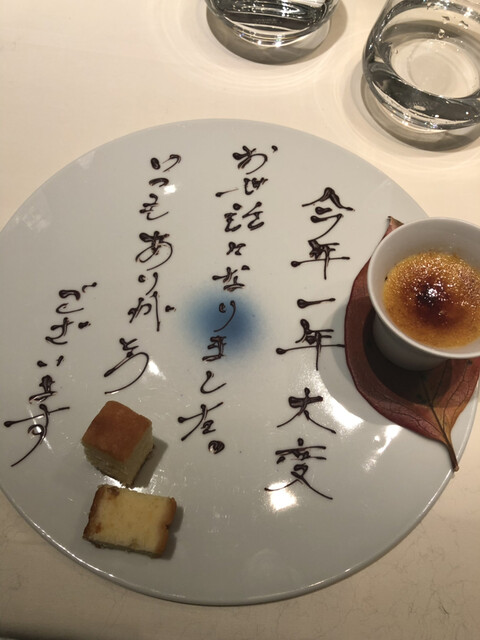 今年一年大変
お世話になりました。
いつもありがとう
ございます